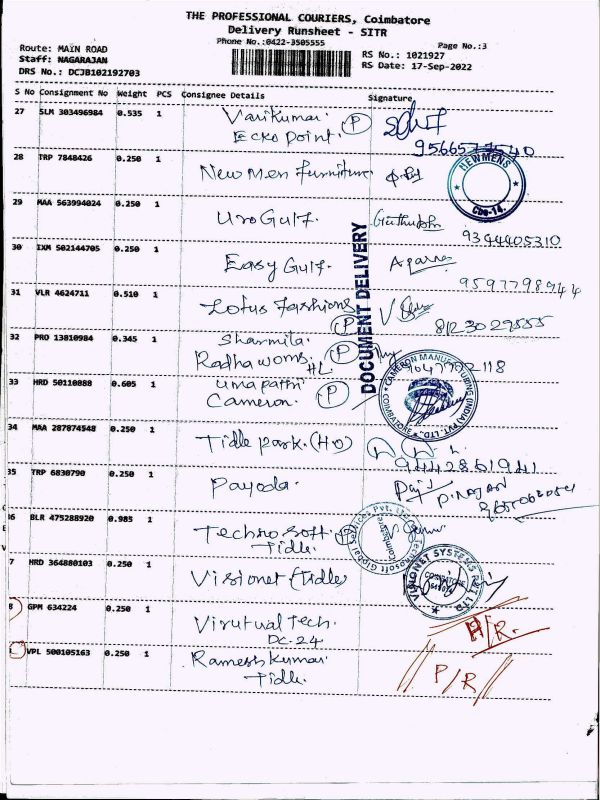 THE PROFESSIONAL COURIERS, Coimbatore
Delivery Runsheet - SITR
Phone No.:0422-3505555
Page No.:3
Route: MAIN ROAD
RS No.: 1021927
Staff: NAGARAJAN
RS Date: 17-Sep-2022
DRS No.: DCJB102192703
S No Consignment No Weight PCS Consignee Details Signature
27 SLM 303496984 0.535 1 Varikumar
Ecko Point. P
28 TRP 7848426 0.250 1 New Men Furniture
NEWMENS
Cbe-14.
29 MAA 563994024 0.250 1 Uro Gulf.
9344405310
30 IXM 502144705 0.250 1 Easy Gulf. Aparna
31 VLR 4624711 0.510 1 Lotus Fashions
P 8123029555
DOCUMENT DELIVERY
32 PRO 13810984 0.345 1 Sharmila
Radha P
33 HRD 50110888 0.605 1 Umapathi
Cameron. P
CAMERON MANUFACTURING (INDIA) PVT. LTD.,
COIMBATORE
34 MAA 287874548 0.250 1 Tidle park. (HO)
9442861941
35 TRP 6830790 0.250 1 Payoda.
36 BLR 475288920 0.985 1 Techno Soft.
Tidle.
Technosoft Global Services Pvt. Ltd.
Coimbatore
7 HRD 364880103 0.250 1 Visionet (Tidle
VISIONET SYSTEMS PVT LTD
COIMBATORE
8 GPM 634224 0.250 1 Virutual Tech.
DC-24
H/R.
VPL 500105163 0.250 1 Ramesh Kumar
Tidle.
P/R